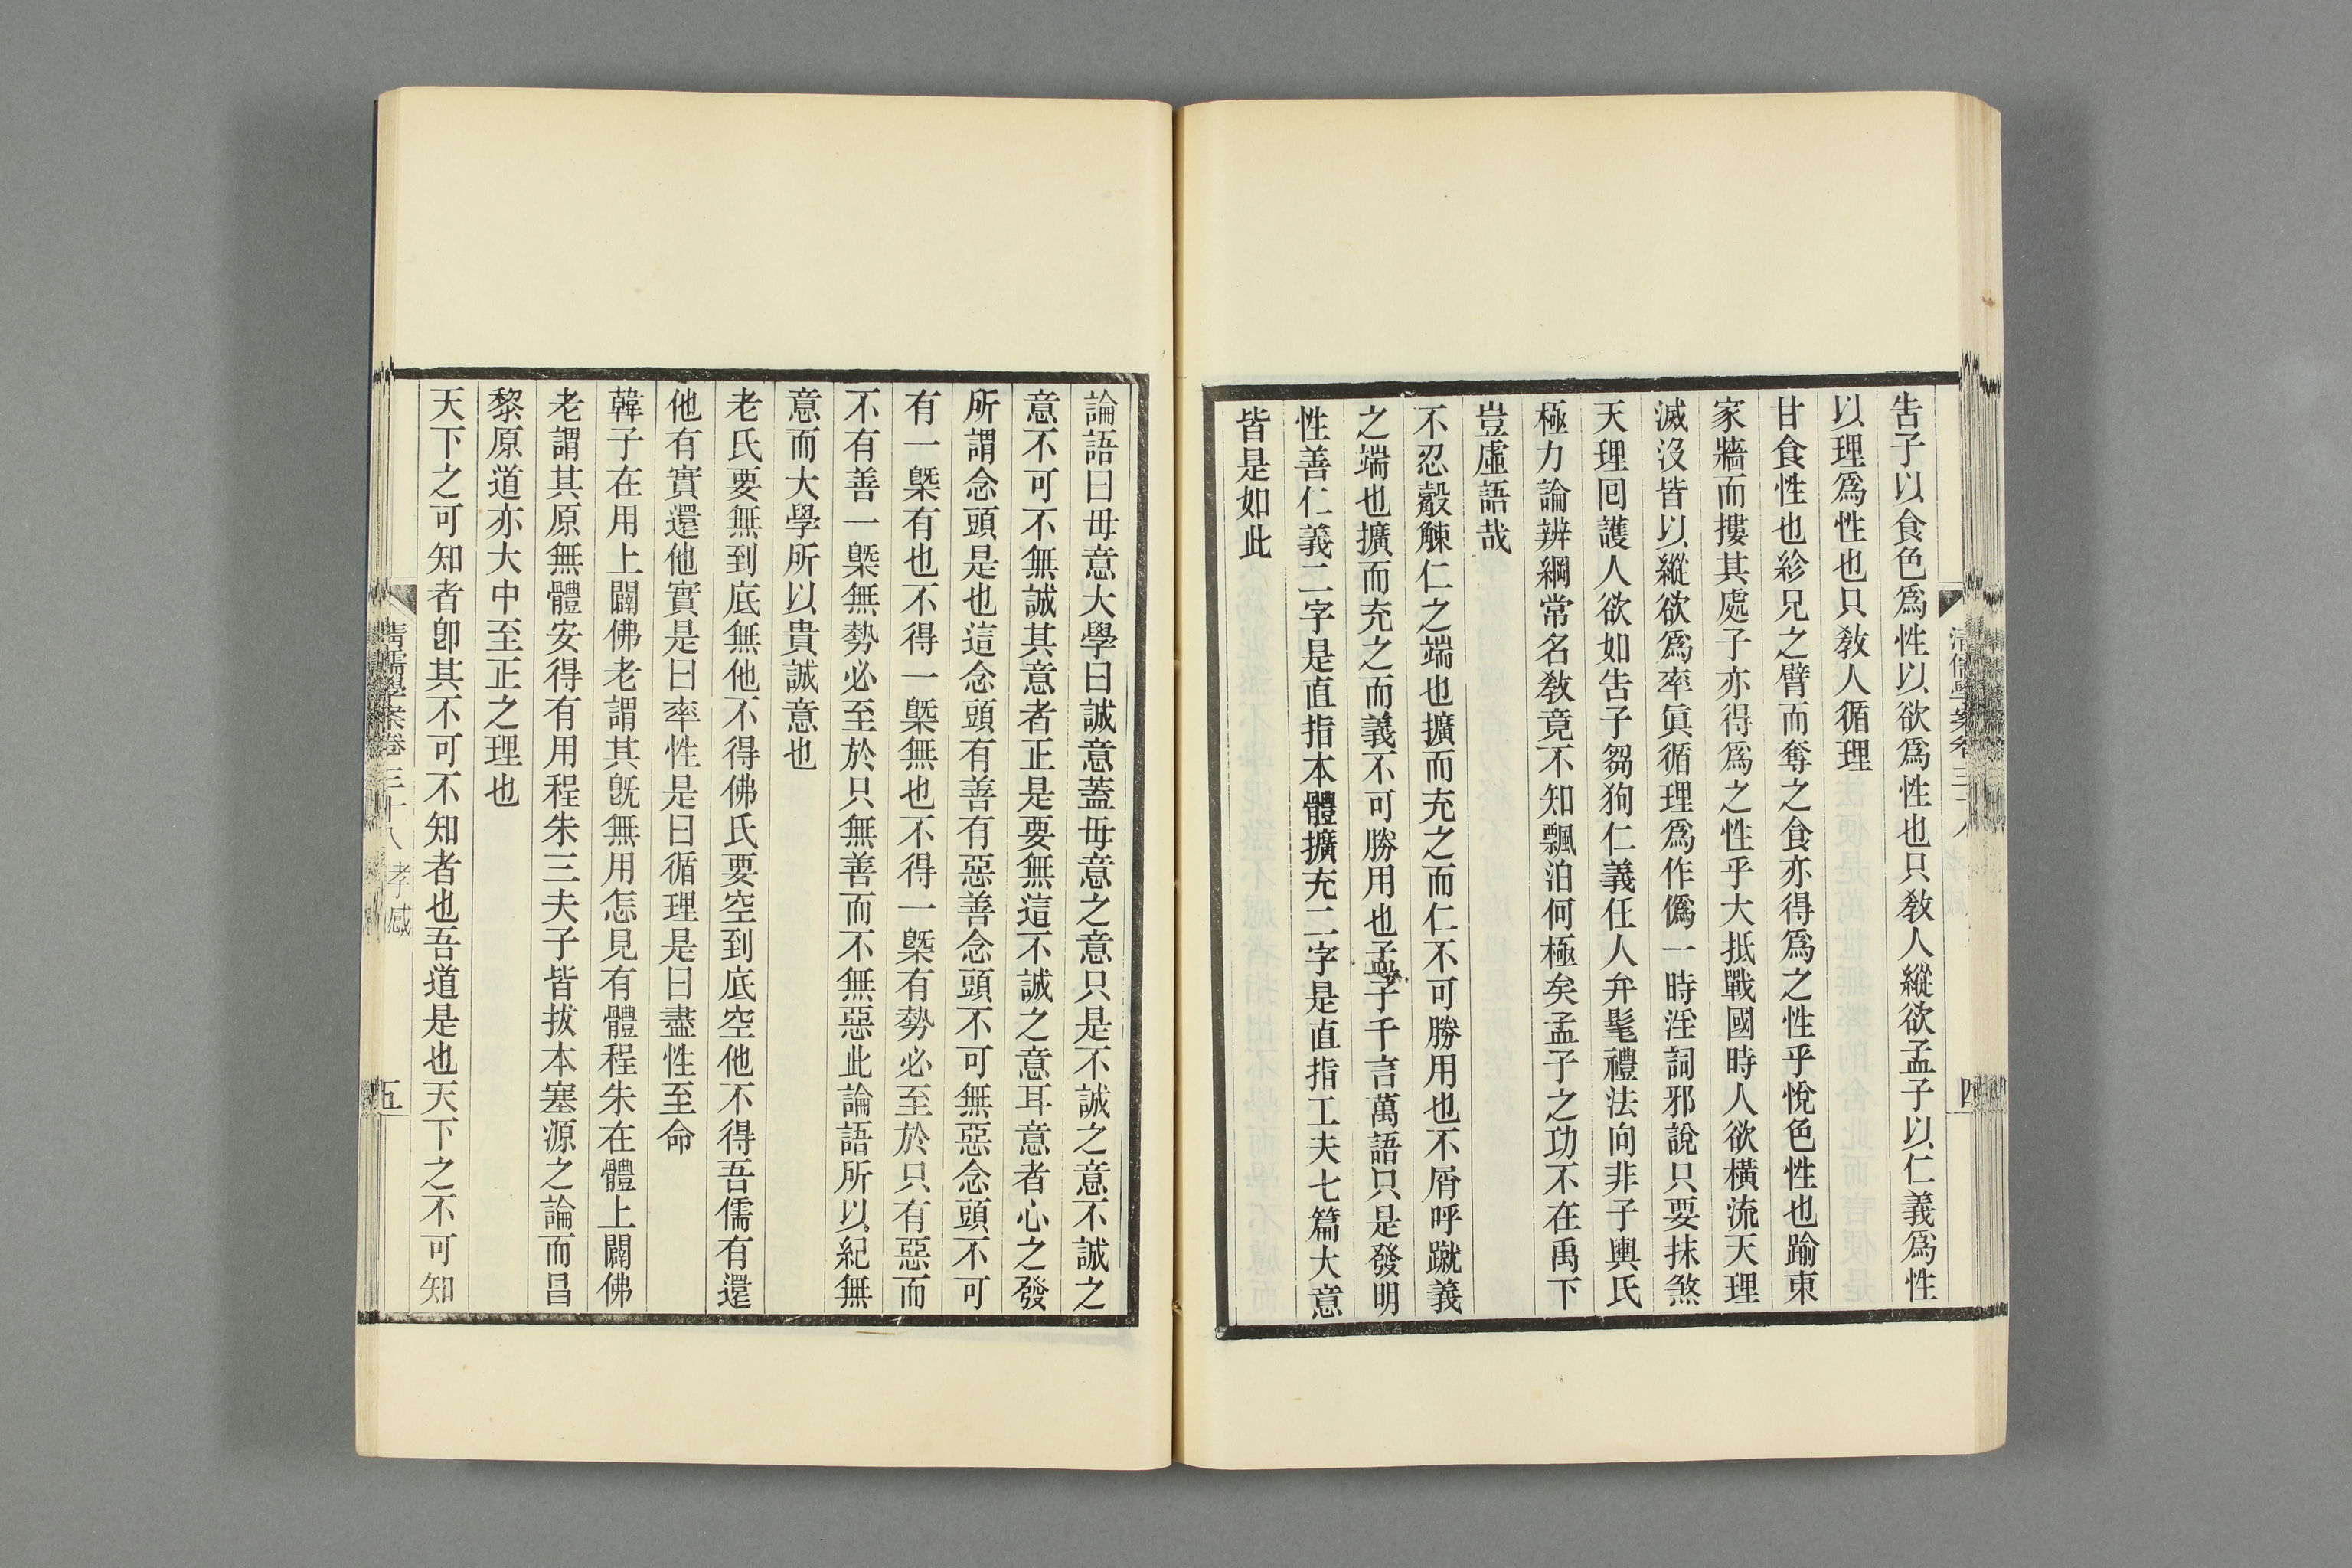 告子以食色爲性以欲爲性也只敎人縱欲孟子以仁義爲性
以理爲性也只敎人循理
甘食性也紾兄之臂而奪之食亦得爲之性乎悅色性也踰東
家牆而摟其處子亦得爲之性乎大抵戰國時人欲橫流天理
滅沒皆以縱欲爲率眞循理爲作僞一時淫詞邪說只要抹煞
天理回護人欲如告子芻狗仁義任人弁髦禮法向非子輿氏
極力論辨綱常名敎竟不知飄泊何極矣孟子之功不在禹下
豈虛語哉
不忍觳觫仁之端也擴而充之而仁不可勝用也不屑呼蹴義
之端也擴而充之而義不可勝用也孟子千言萬語只是發明
性善仁義二字是直指本體擴充二字是直指工夫七篇大意
皆是如此
清儒學案卷三十八
四
論語曰毋意大學曰誠意蓋毋意之意只是不誠之意不誠之
意不可不無誠其意者正是要無這不誠之意耳意者心之發
所謂念頭是也這念頭有善有惡善念頭不可無惡念頭不可
有一槩有也不得一槩無也不得一槩有勢必至於只有惡而
不有善一槩無勢必至於只無善而不無惡此論語所以紀無
意而大學所以貴誠意也
老氏要無到底無他不得佛氏要空到底空他不得吾儒有還
他有實還他實是曰率性是曰循理是曰盡性至命
韓子在用上闢佛老謂其旣無用怎見有體程朱在體上闢佛
老謂其原無體安得有用程朱三夫子皆拔本塞源之論而昌
黎原道亦大中至正之理也
天下之可知者卽其不可不知者也吾道是也天下之不可知
清儒學案卷三十八 孝感
五